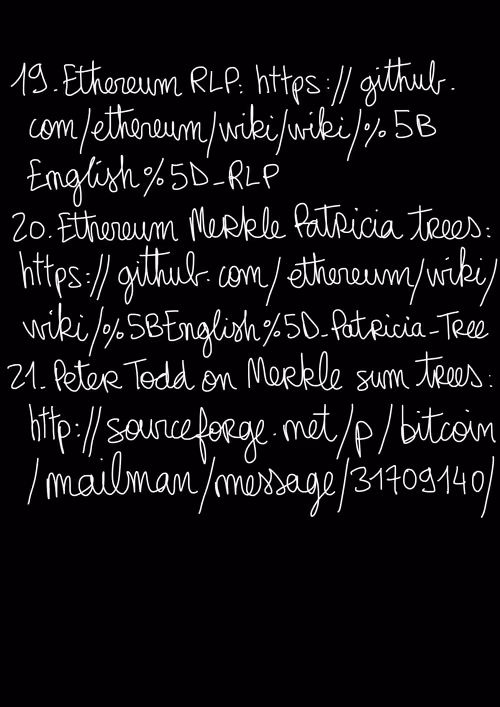 19. Ethereum RLP: https://github.
com/ethereum/wiki/wiki/%5B
English%5D-RLP
20. Ethereum Merkle Patricia trees:
https://github.com/ethereum/wiki/
wiki/%5BEnglish%5D-Patricia-Tree
21. Peter Todd on Merkle sum trees:
http://sourceforge.net/p/bitcoin
/mailman/message/31709140/